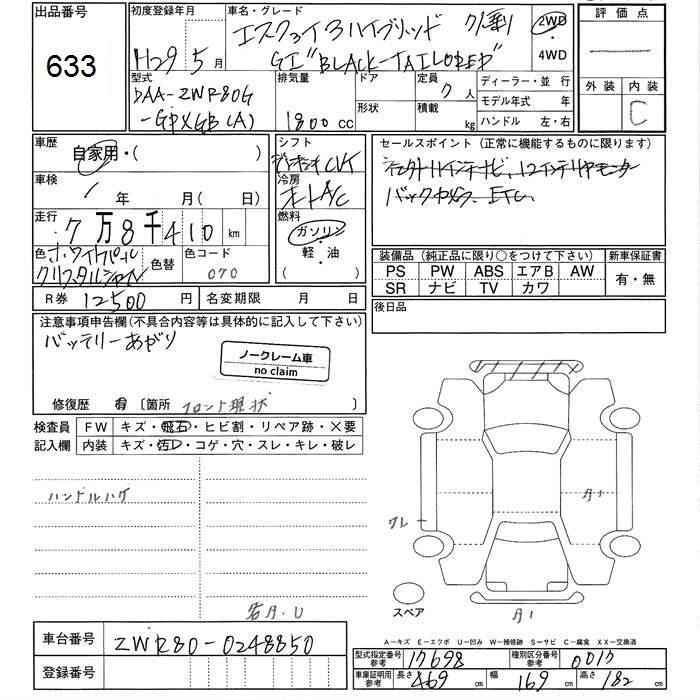 出品番号
633
初度登録年月
H29 5 月
車名・グレード
エスクァイアハイブリッド
GI "BLACK-TAILORED"
2WD
・
4WD
評価点
外装 内装
C
型式
DAA-ZWR80G
-GPXGB(A)
排気量
1800 cc
ドア
形状
定員
7 人
積載
kg
ディーラー・並行
モデル年式 年
ハンドル 左・右
車歴
自家用・( )
車検
年 月( 日)
走行
7万8千410 km
色
ホワイトパール
クリスタルシャイン
色替
色コード
070
R券 12500 円
名変期限 月 日
シフト
CVT
冷房
オートA/C
燃料
ガソリン
・
軽・油
セールスポイント (正常に機能するものに限ります)
12インテリヤモニター
バックカメラ. ETC.
装備品 (純正品に限り○をつけて下さい)
PS PW ABS エアB AW
SR ナビ TV カワ
新車保証書
有・無
後日品
注意事項申告欄(不具合内容等は具体的に記入して下さい)
バッテリーあがり
ノークレーム車
no claim
修復歴 有 〔箇所 フロント現状 〕
検査員
記入欄
FW キズ・飛石・ヒビ割・リペア跡・×要
内装 キズ・汚レ・コゲ・穴・スレ・キレ・破レ
ハンドルハゲ
各A・U
ワレ
A1
スペア
A1
車台番号 ZWR80-0248850
登録番号
A-キズ E-エクボ U-凹み W-補修跡 S-サビ C-腐食 XX-交換済
型式指定番号 参考 17698
種別区分番号 参考 0017
車庫証明用 参考 長さ 469 cm 幅 169 cm 高さ 182 cm